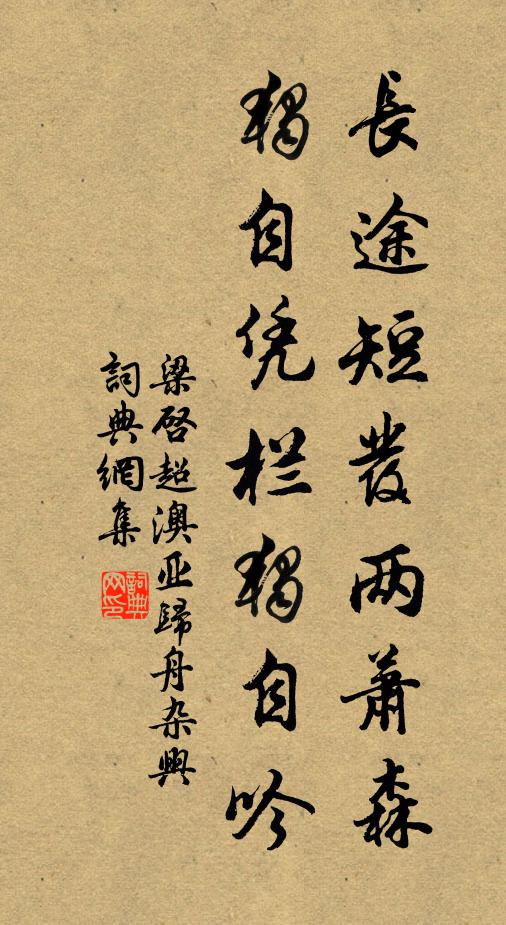 長途短發两蕭森
獨自凭栏獨自吟
梁啓超澳亚歸舟杂興
詞典網集
詞典网印